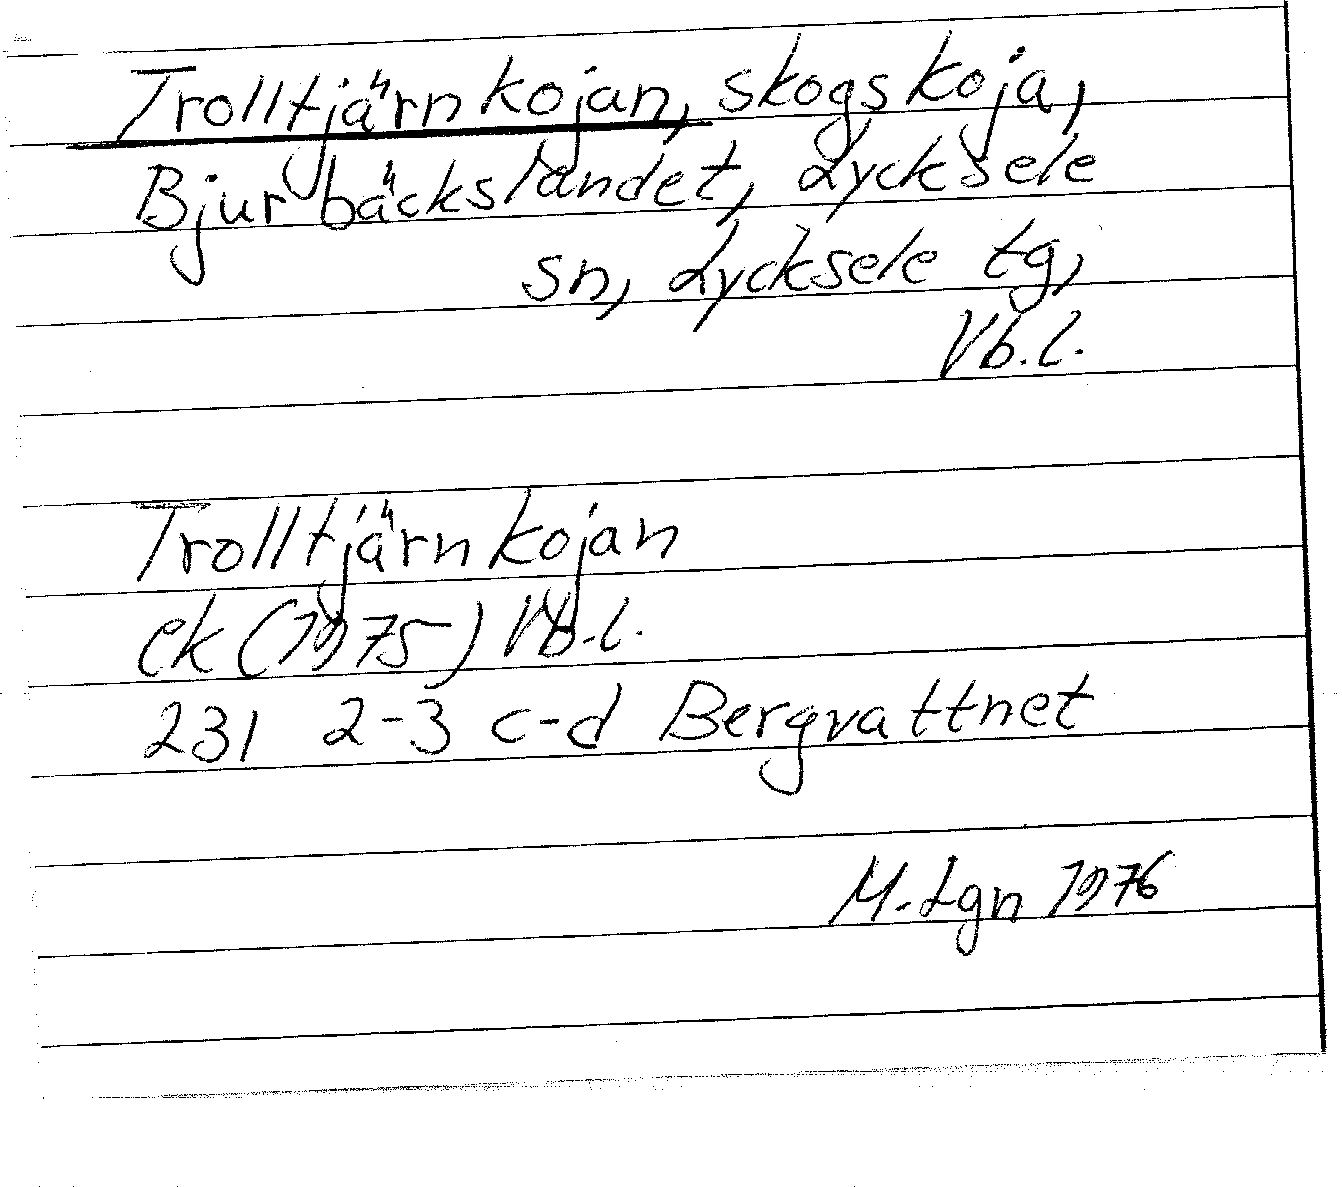 Trolltjärnkojan, skogskoja,
Bjurbäckslandet, Lycksele
sn, Lycksele tg,
Vb.l.
Trolltjärnkojan
ek (1975) Vb.l.
231 2-3 c-d Bergvattnet
M. Lgn 1976